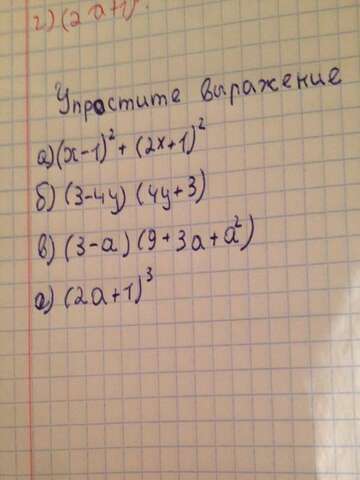 г) (2a+1)
Упростите выражение
а) (x-1)² + (2x+1)²
б) (3-4y) (4y+3)
в) (3-a) (9+3a+a²)
а) (2a+1)³